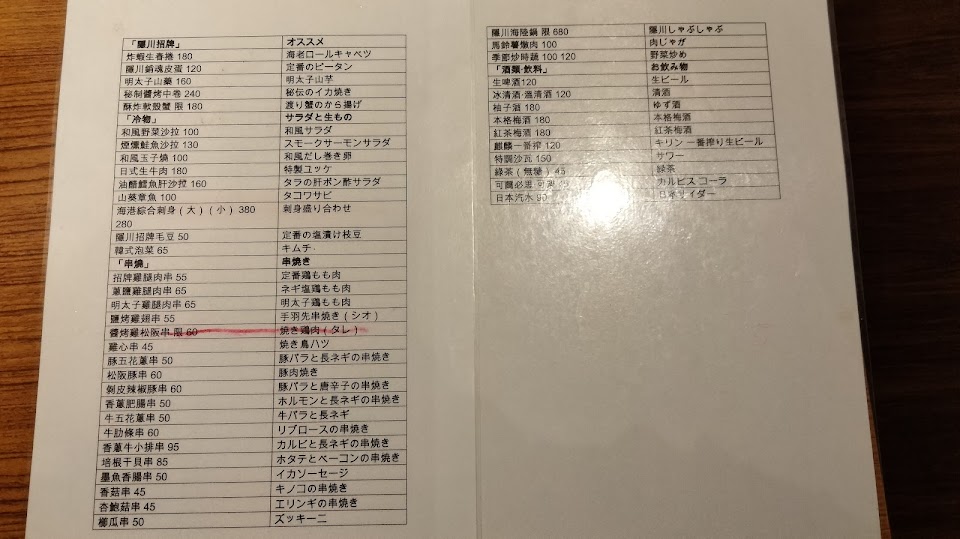 「隱川招牌」 オススメ
炸蝦生春捲 180 海老ロールキャベツ
隱川銷魂皮蛋 120 定番のピータン
明太子山藥 160 明太子山芋
秘制醬烤中卷 240 秘伝のイカ焼き
酥炸軟殼蟹 限 180 渡り蟹のから揚げ
「冷物」 サラダと生もの
和風野菜沙拉 100 和風サラダ
煙燻鮭魚沙拉 130 スモークサーモンサラダ
和風玉子燒 100 和風だし巻き卵
日式生牛肉 180 特製ユッケ
油醋鱈魚肝沙拉 160 タラの肝ポン酢サラダ
山葵章魚 100 タコワサビ
海港綜合刺身（大）（小） 380 刺身盛り合わせ
280
隱川招牌毛豆 50 定番の塩漬け枝豆
韓式泡菜 65 キムチ
「串燒」 串焼き
招牌雞腿肉串 55 定番鶏もも肉
蔥鹽雞腿肉串 65 ネギ塩鶏もも肉
明太子雞腿肉串 65 明太子鶏もも肉
鹽烤雞翅串 55 手羽先串焼き（シオ）
醬烤雞松阪串 限 60 焼き鶏肉（タレ）
雞心串 45 焼き鳥ハツ
豚五花蔥串 50 豚バラと長ネギの串焼き
松阪豚串 60 豚肉焼き
剝皮辣椒豚串 60 豚バラと唐辛子の串焼き
香蔥肥腸串 50 ホルモンと長ネギの串焼き
牛五花蔥串 50 牛バラと長ネギ
牛肋條串 60 リブロースの串焼き
香蔥牛小排串 95 カルビと長ネギの串焼き
培根干貝串 85 ホタテとベーコンの串焼き
墨魚香腸串 50 イカソーセージ
香菇串 45 キノコの串焼き
杏鮑菇串 45 エリンギの串焼き
櫛瓜串 50 ズッキーニ
隱川海陸鍋 限 680 隱川しゃぶしゃぶ
馬鈴薯燉肉 100 肉じゃが
季節炒時蔬 100 120 野菜炒め
「酒類·飲料」 お飲み物
生啤酒120 生ビール
冰清酒·溫清酒 120 清酒
柚子酒 180 ゆず酒
本格梅酒 180 本格梅酒
紅茶梅酒 180 紅茶梅酒
麒麟一番搾 120 キリン一番搾り生ビール
特調沙瓦 150 サワー
綠茶（無糖） 45 緑茶
可爾必思 カルピス コーラ
日本汽水 90 日本サイダー